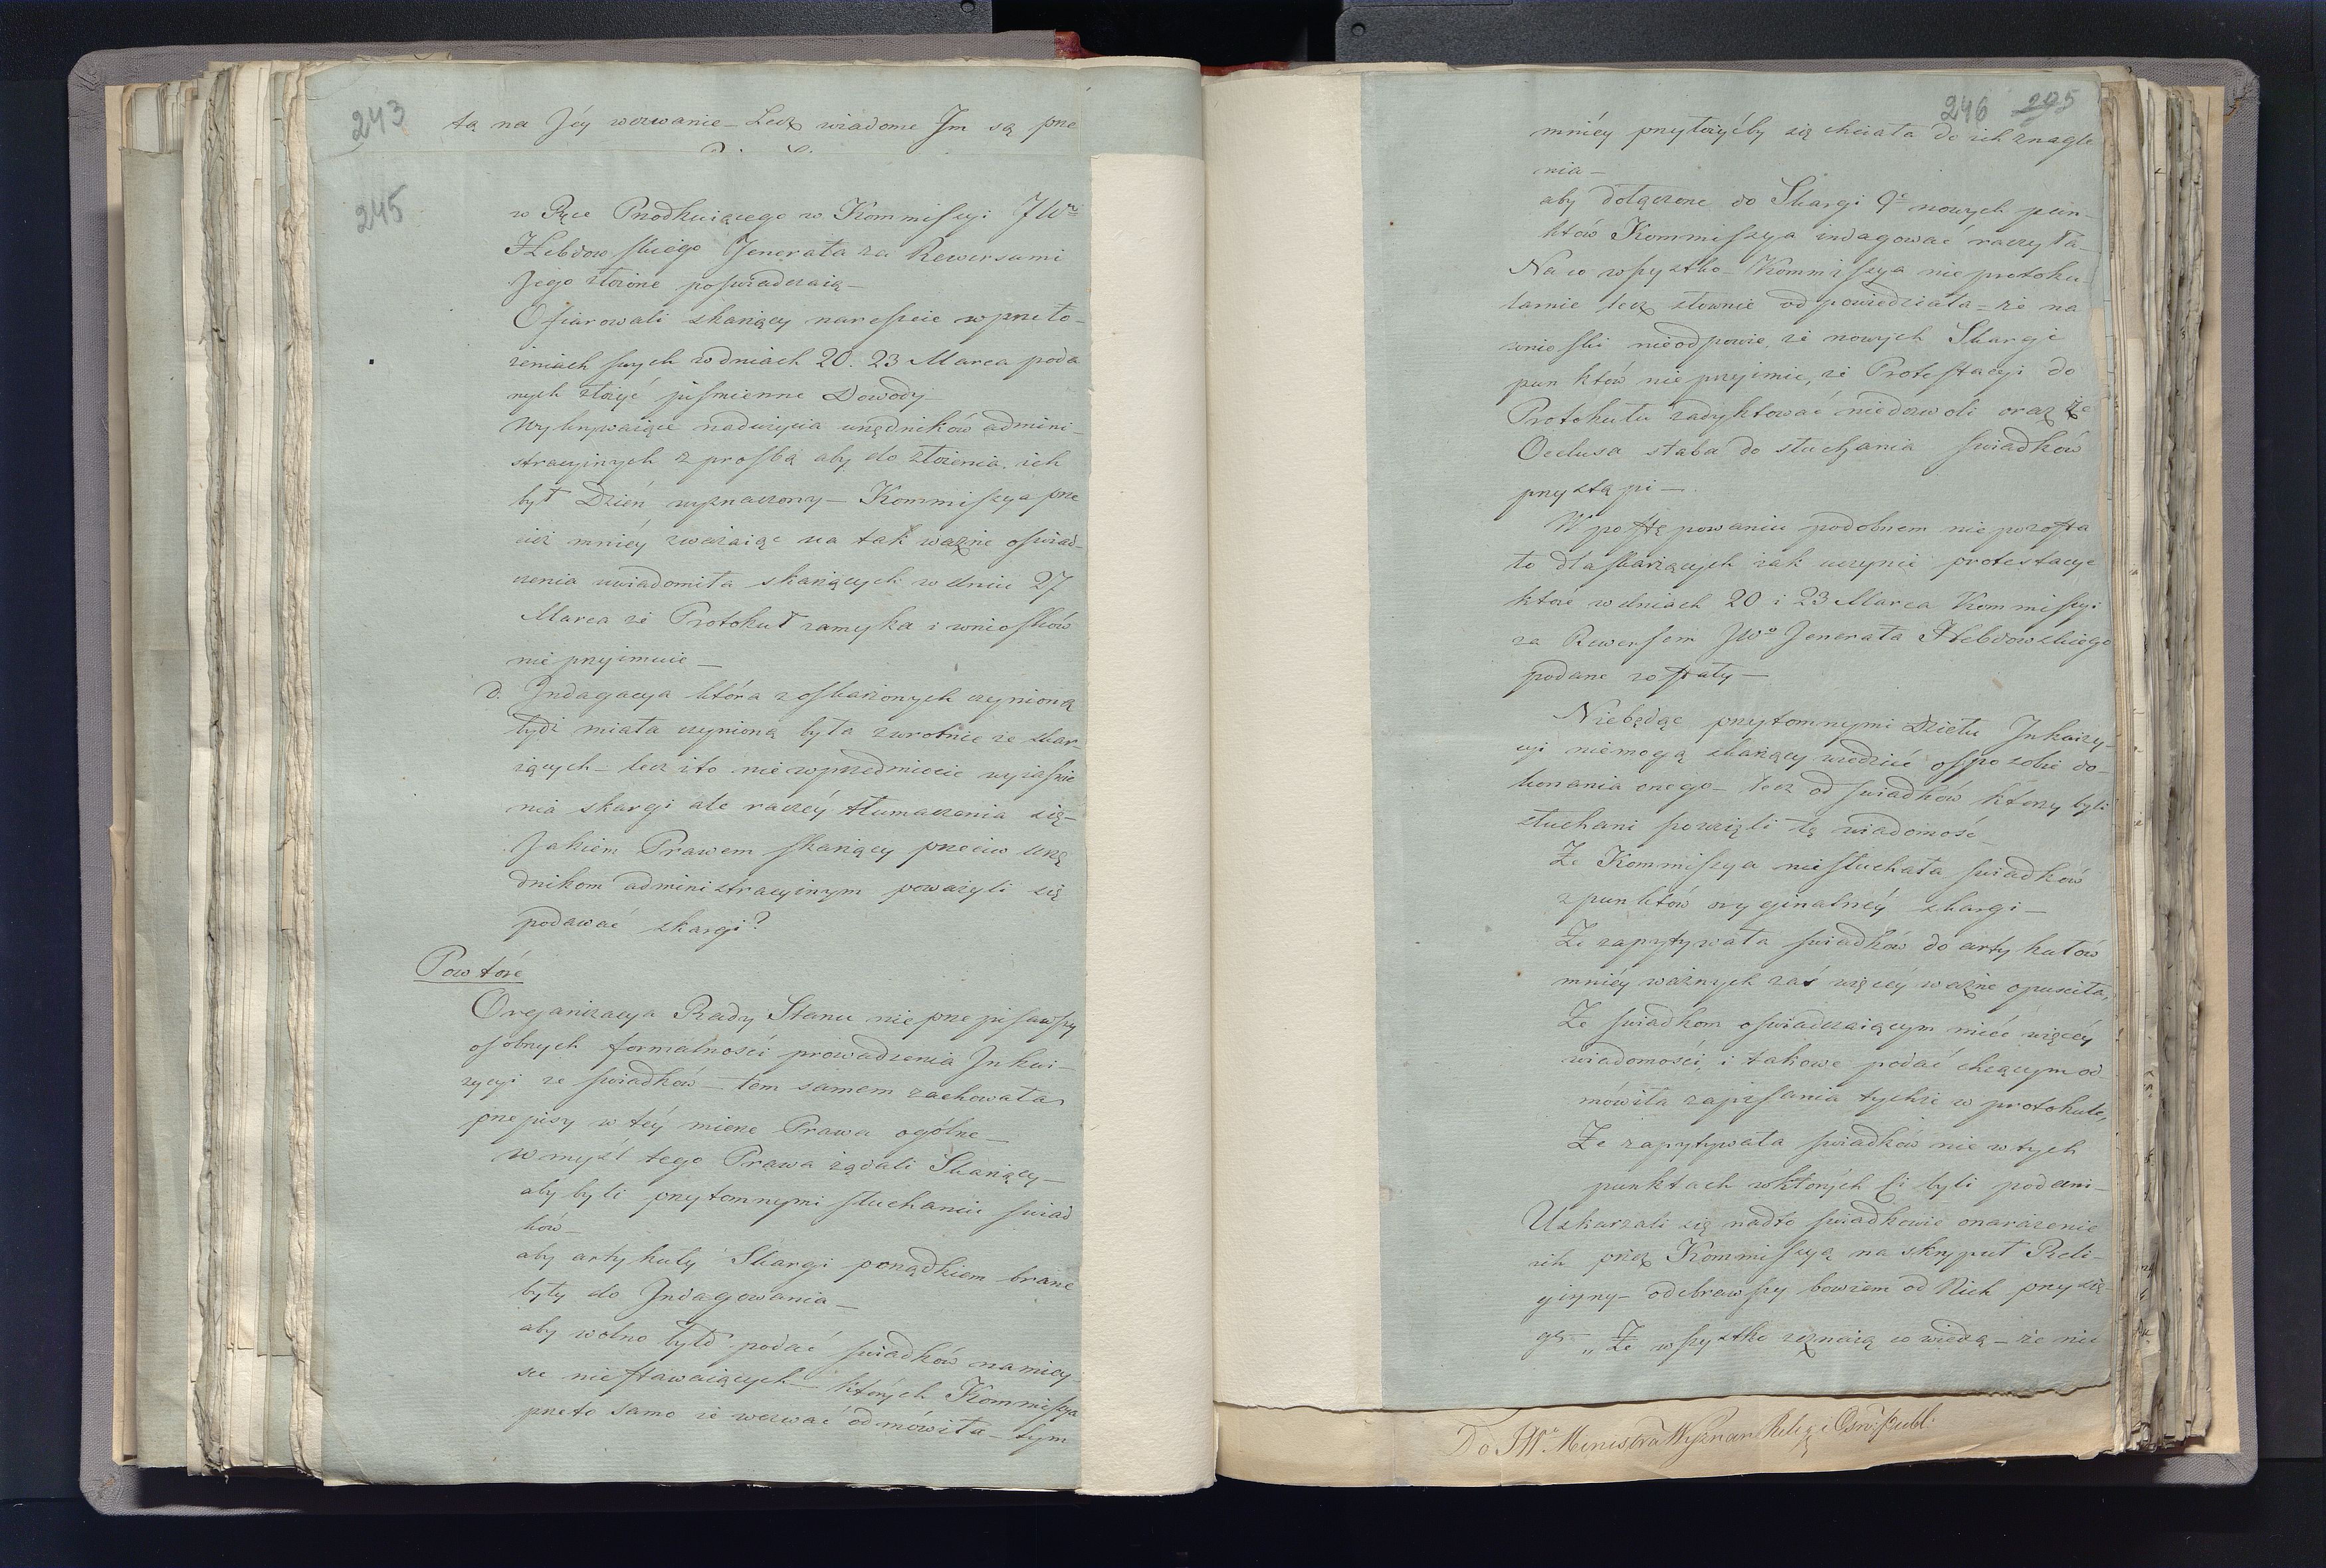 243
tą na Jéy wezwanie – Lecz wiadome Im są prze
245
w Ręce Prodkuiącego w Kommissyi JWo
Hebdowskiego Jenerała za Rewersami
Jego złożone poswiadczaią –
Ofiarowali skarżący nareszcie w przeło-
żeniach swych w dniach 20. 23 Marca poda
nych złożyć pismienne Dowody
Wykrywaiące nadużycia urzędników admini-
stracyinych z prosbą aby do złożenia ich
był Dzień wyznaczony – Kommissya prze
ciż mniéy zważaiąc na tak ważne oswiad-
czenia uwiadomiła skarżących w dniu 27
Marca że Protokuł zamyka i wniosków
nie przyimuie –
d. Indagacya która z oskarżonych czynioną
bydź miała czynioną była zwrotnie ze skar-
żących – lecz i to nie w przedmiocie wyiasnie
nia skargi ale raczéy tłumaczenia się –
Jakiem Prawem skarżący przeciw urzę
dnikom administracyinym poważyli się
podawać skargi?
Powtóre
Organizacya Rady Stanu nie przepisawszy
osobnych formalności prowadzenia Inkwi-
zycyi ze swiadków – tem samem zachowała
przepisy w téy mierze Prawa ogólne –
w myśl tego Prawa żądali Skarżący –
aby byli przytomnymi słuchaniu swiad
ków –
aby artykuły Skargi porządkiem brane
były do Indagowania –
aby wolno było podać swiadków na miey-
sce niestawaiących – których Kommissya
przeto samo że wezwać odmówiła – tym
246 295
mniéy przyłożyćby się chciała do ich znagle
nia –
aby dołączone do Skargi 9c nowych pun-
któw Kommissya indagować raczyła –
Na co wszystko – Kommissya nie protoku-
larnie lecz słownie odpowiedziała – że na
wnioski nieodpowie, że nowych Skargi
punktów nie przyimie, że Protestacyi do
Protokułu zadyktować niedozwoli oraz że
do słuchania swiadków
przystąpi –
W postępowaniu podobnem nie pozosta
ło dla skarżących iak uczynić protestacye
które w dniach 20 i 23 Marca Kommissyi
za Rewersem JWo Jenerała Hebdowskiego
podane zostały –
Niebędąc przytomnymi Dziełu Inkwizy-
cyi niemogą skarżący wiedzieć o sposobie do-
konania onego – lecz od swiadków którzy byli
słuchani powzięli tę wiadomość
Że Kommissya niesłuchała swiadków
z punktów oryginalnéy skargi –
Że zapytywała swiadków do artykułów
mniéy ważnych zaś więcéy ważne opusciła,
Że swiadkom oswiadczaiącym mieć więcéy
wiadomości, i takowe podać chcącym od-
mówiła zapisania tychże w protokule,
Że zapytywała swiadków nie w tych
punktach w których ci byli podani –
Uskarżali się nadto swiadkowie o narażenie
ich przez Kommissyą na skrypuł Reli-
giyny – odebrawszy bowiem od Nich przysię-
gę – „Że wszystko zeznaią co wiedzą – że nic
Do JWo Ministra Wyznan Relig: i Oswi: publ: